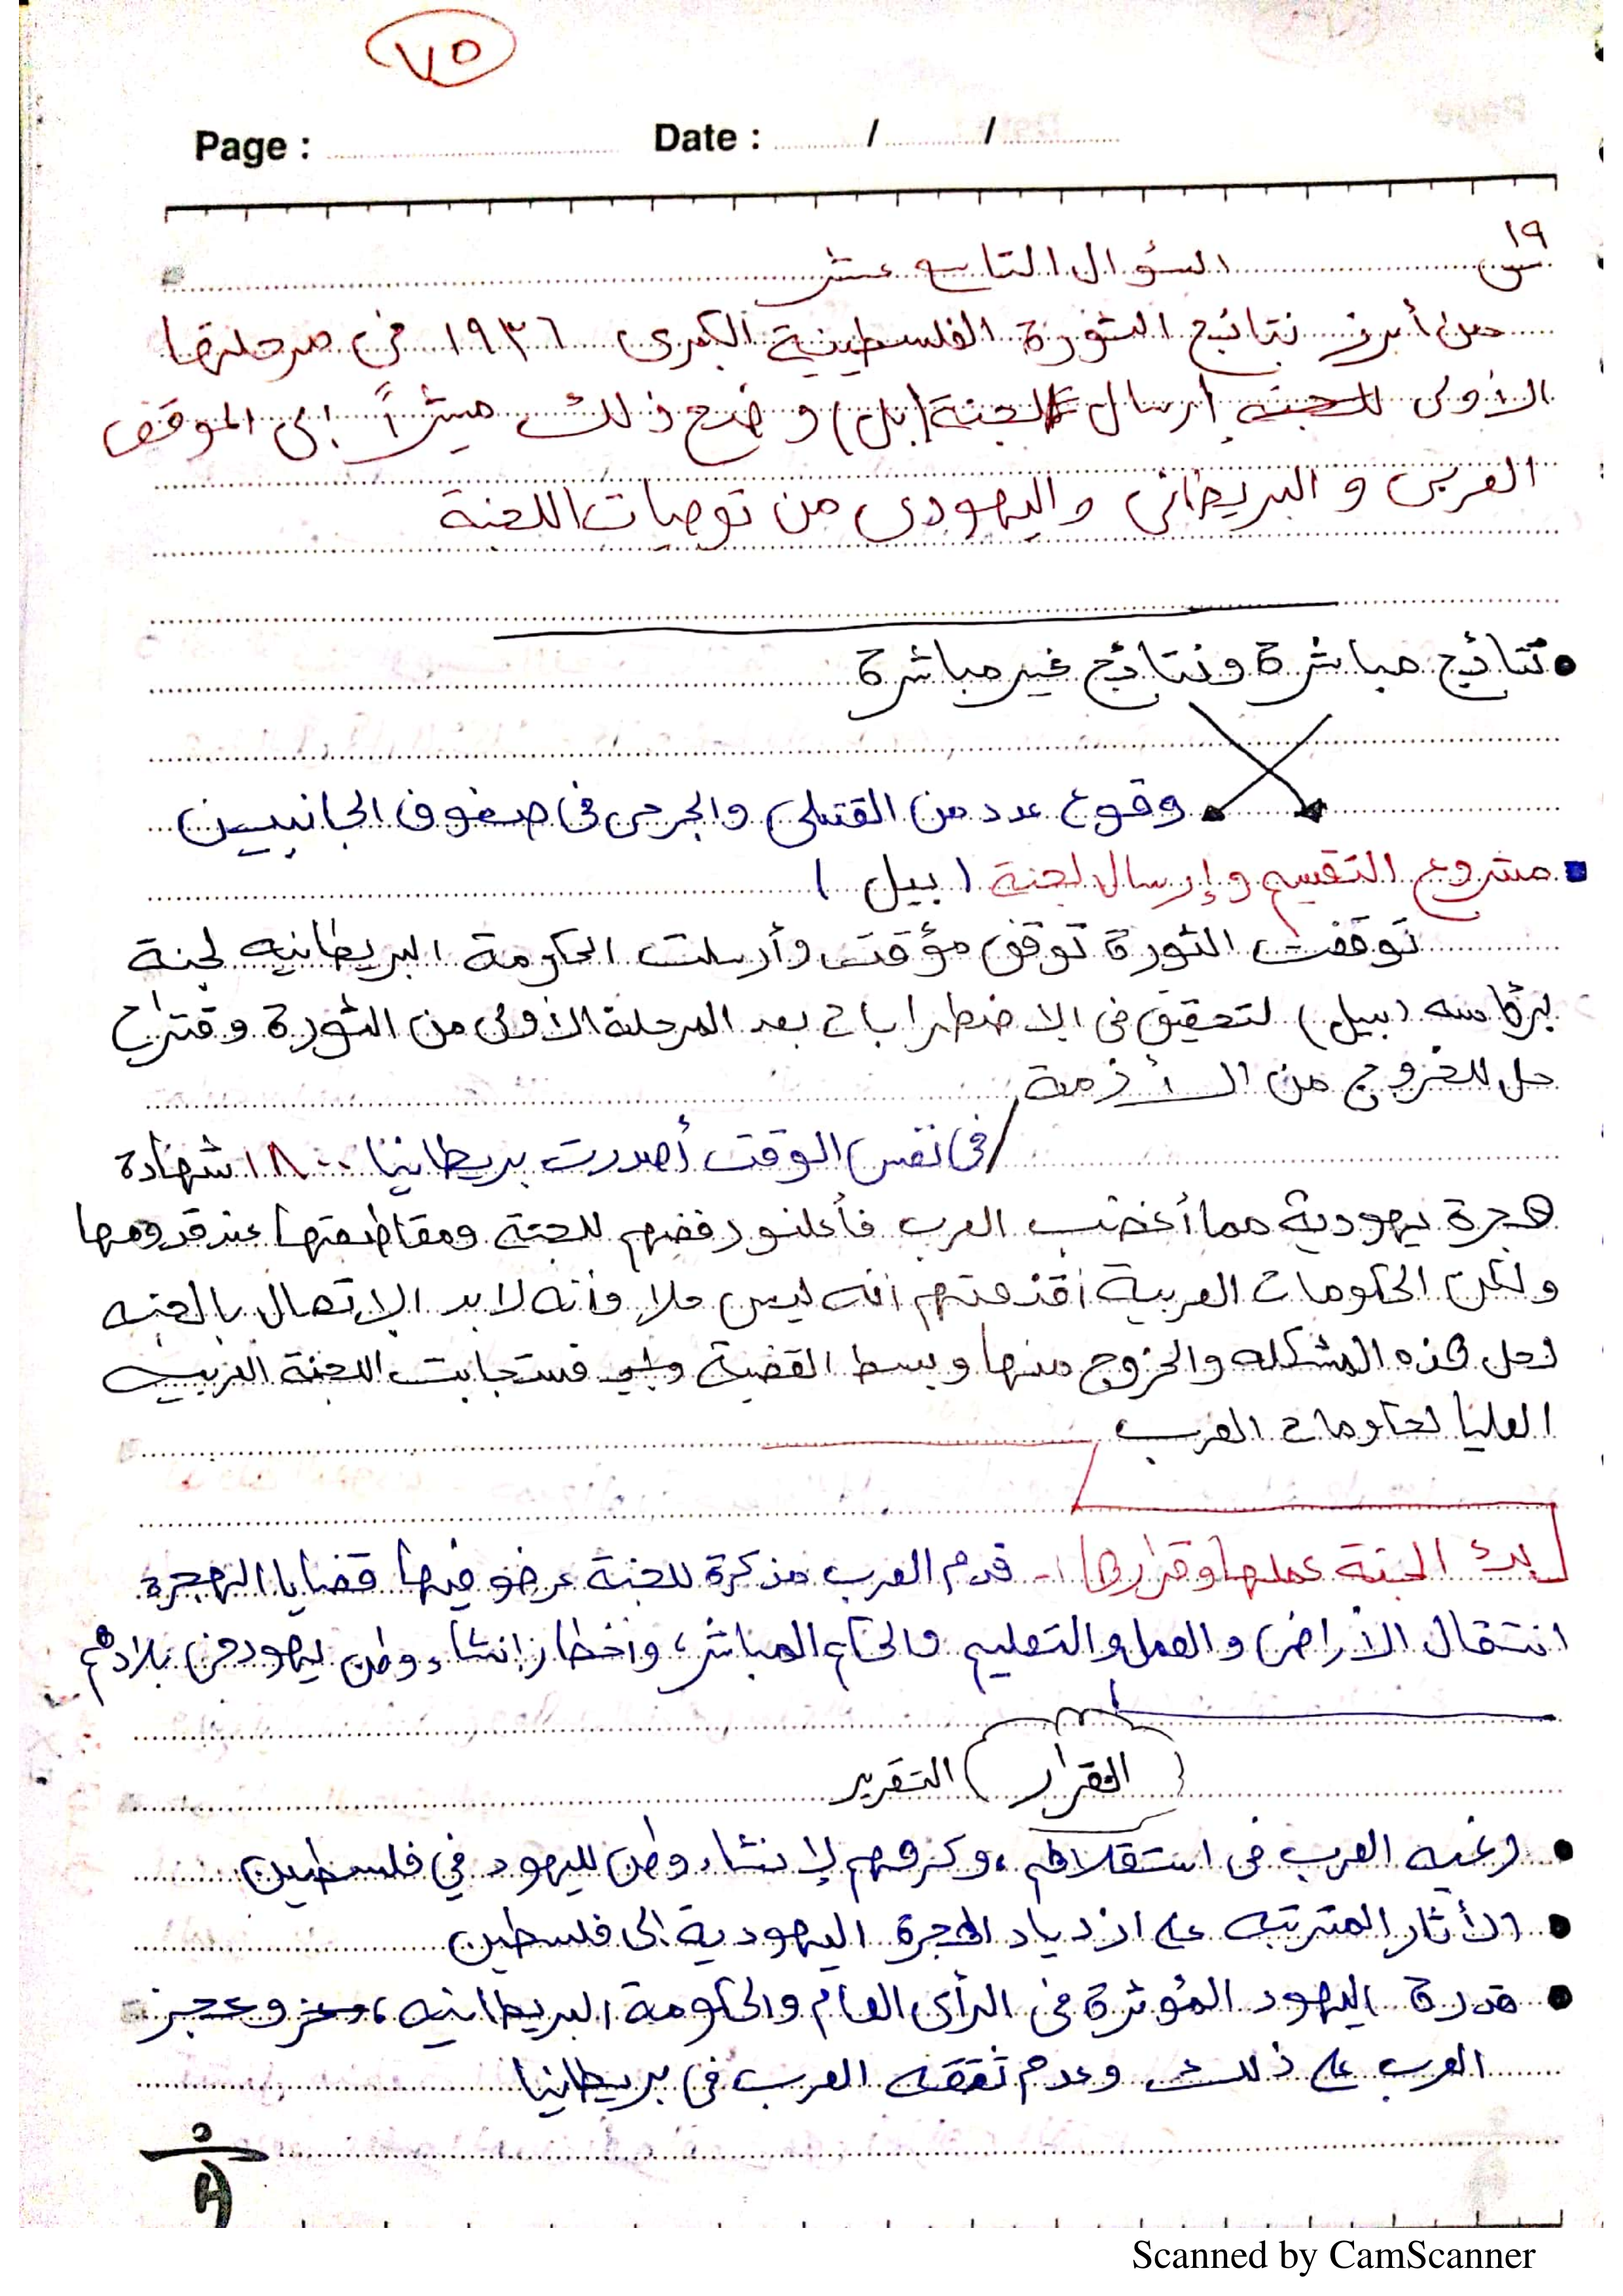 ٧٥
Page : Date : / /
س١٩ السؤال التاسع عشر
من أبرز نتائج الثورة الفلسطينية الكبرى ١٩٣٦ في مرحلتها
الأولى للجنه إرسال لجنة (بل) وضح ذلك ميشراً إلى الموقف
العربي والبريطاني واليهودي من توصيات اللجنة
• نتائج مباشرة ونتائج غير مباشرة
• وقوع عدد من القتلى والجرحى في صفوف الجانبين
▪ مشروع التقسيم وإرسال لجنة (بيل)
توقفت الثورة توقف مؤقت وأرسلت الحكومة البريطانيه لجنة
برئاسه (بيل) لتحقيق في الاضطرابات بعد المرحلة الأولى من الثورة وقتراح
حل للخروج من الأزمة
/ في نفس الوقت أصدرت بريطانيا ١٨٠٠ شهادة
هجرة يهودية مما أغضب العرب فأعلنو رفضهم للجنة ومقاطعتها عند قدومها
ولكن الحكومات العربية أقنعتهم أنه ليس حلا وأنه لا بد الإتصال بالجنه
لحل هذه المشكله والخروج منها وبسط القضية فستجابت اللجنة العربيه
العليا لحكومات العرب
بدئ الجنة عملها وقرارها :- قدم العرب مذكرة للجنة عرضو فيها قضايا الهجرة
انتقال الأراضي والعمل والتعليم والحكم المباشر، وأخطار إنشاء وطن ليهود في بلادهم
(القرار) التقرير
• رغبه العرب في استقلالهم، وكرههم لإنشاء وطن لليهود في فلسطين
• الأثار المترتبه على ازدياد الهجرة اليهودية إلى فلسطين
• قدرة اليهود المؤثرة في الرأي العام والحكومة البريطانيه، وعجز
العرب على ذلك وعدم ثققه العرب في بريطانيا
Scanned by CamScanner